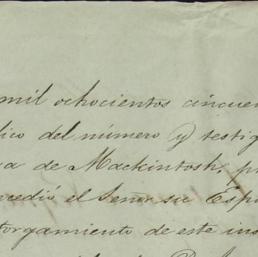 mil ochocientos cincuen
lico del número y testig
a de Mackintosh, p
cedió el Señor su Esp
torgamiento de este ins